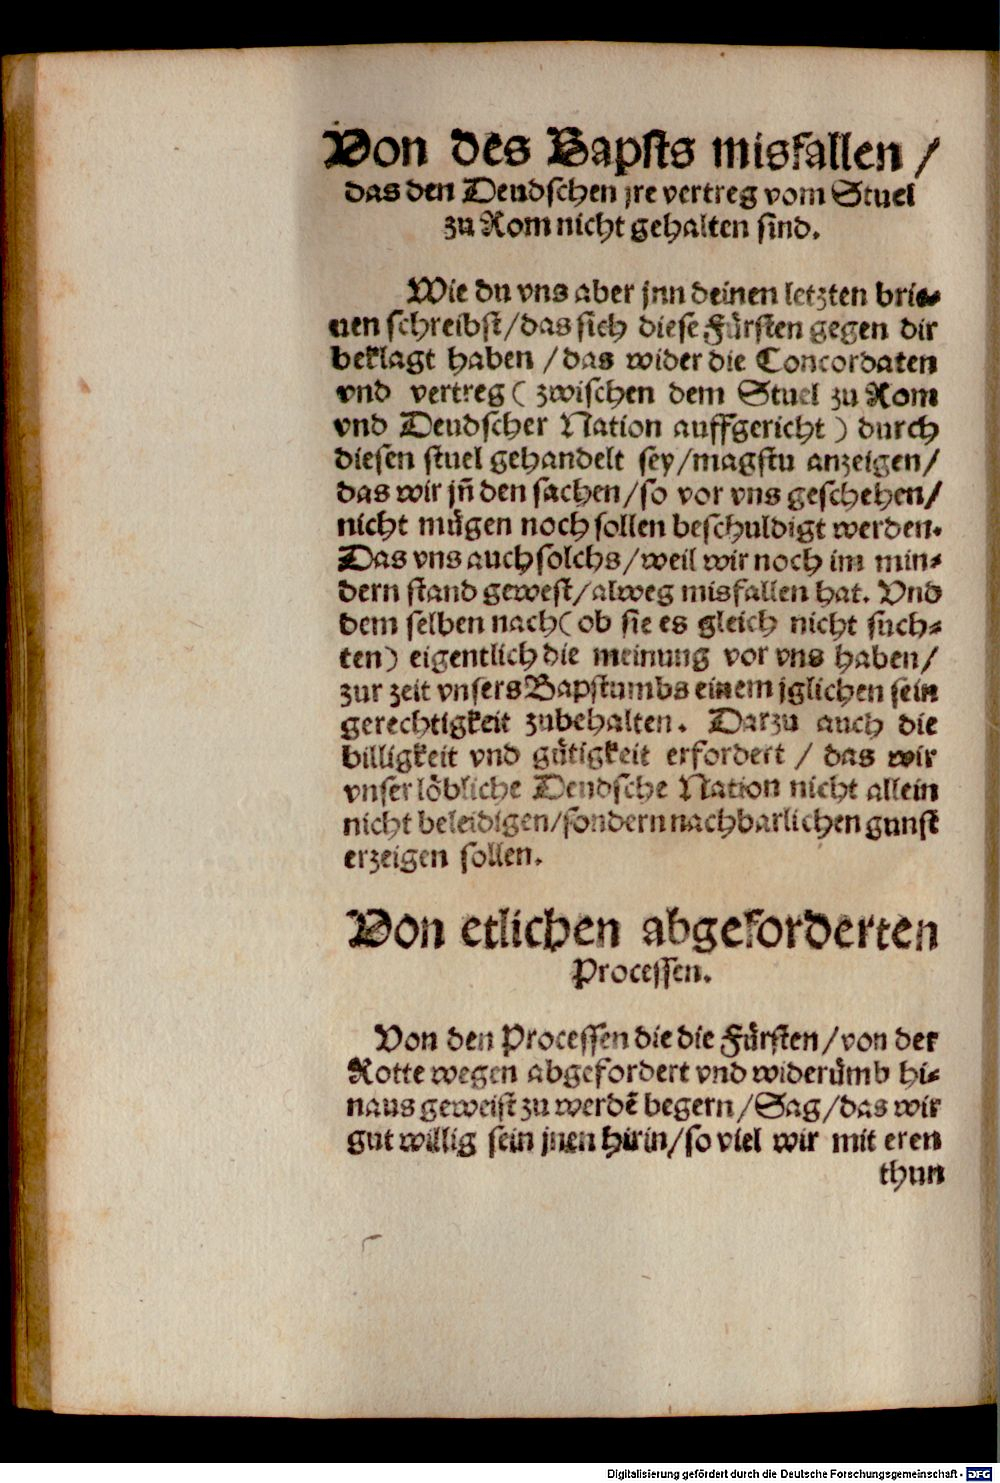 Von des Bapsts misfallen /
das den Deudschen jre vertreg vom Stuel
zu Rom nicht gehalten sind.
Wie du vns aber jnn deinen letzten brie⸗
uen schreibst/das sich diese Fürsten gegen dir
beklagt haben /das wider die Concordaten
vnd vertreg ( zwischen dem Stuel zu Rom
vnd Deudscher Nation auffgericht ) durch
diesen stuel gehandelt sey/magstu anzeigen/
das wir jñ den sachen/so vor vns geschehen/
nicht mügen noch sollen beschuldigt werden.
Das vns auch solchs/weil wir noch im min⸗
dern stand gewest/alweg misfallen hat. Vnd
dem selben nach( ob sie es gleich nicht such⸗
ten) eigentlich die meinung vor vns haben/
zur zeit vnsers Bapstumbs einem jglichen sein
gerechtigkeit zubehalten. Darzu auch die
billigkeit vnd gütigkeit erfordert / das wir
vnser löbliche Deudsche Nation nicht allein
nicht beleidigen/sondern nachbarlichen gunst
erzeigen sollen.
Von etlichen abgeforderten
Processen.
Von den Processen die die Fürsten/von der
Rotte wegen abgefordert vnd widerümb hi⸗
naus geweist zu werdẽ begern/Sag/das wir
gut willig sein jnen hirin/so viel wir mit eren
thun
Digitalisierung gefördert durch die Deutsche Forschungsgemeinschaft - DFG